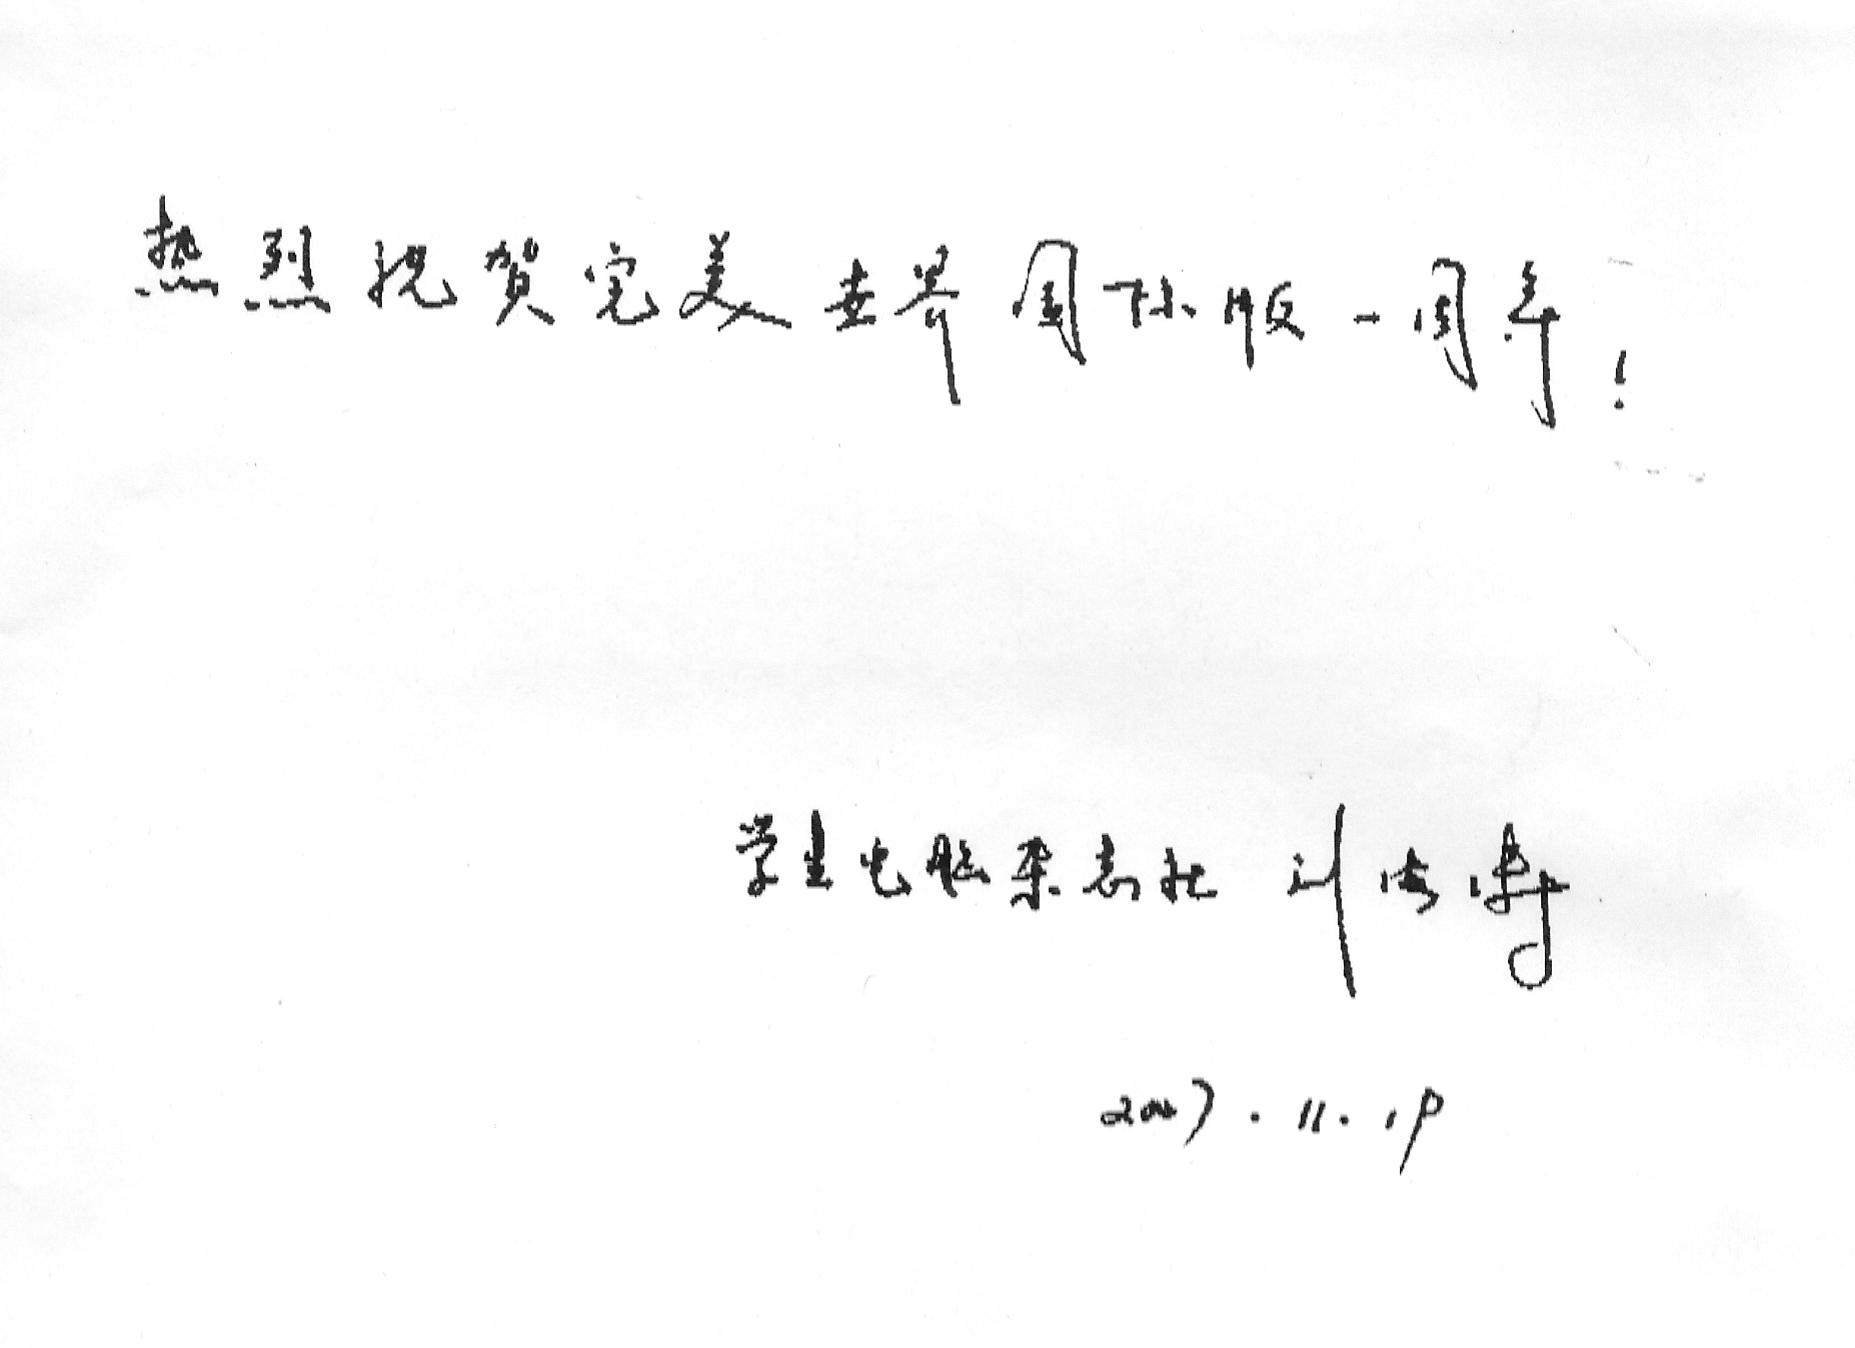 热烈祝贺完美世界国际版一周年！
学生电脑杂志社
2007.11.19